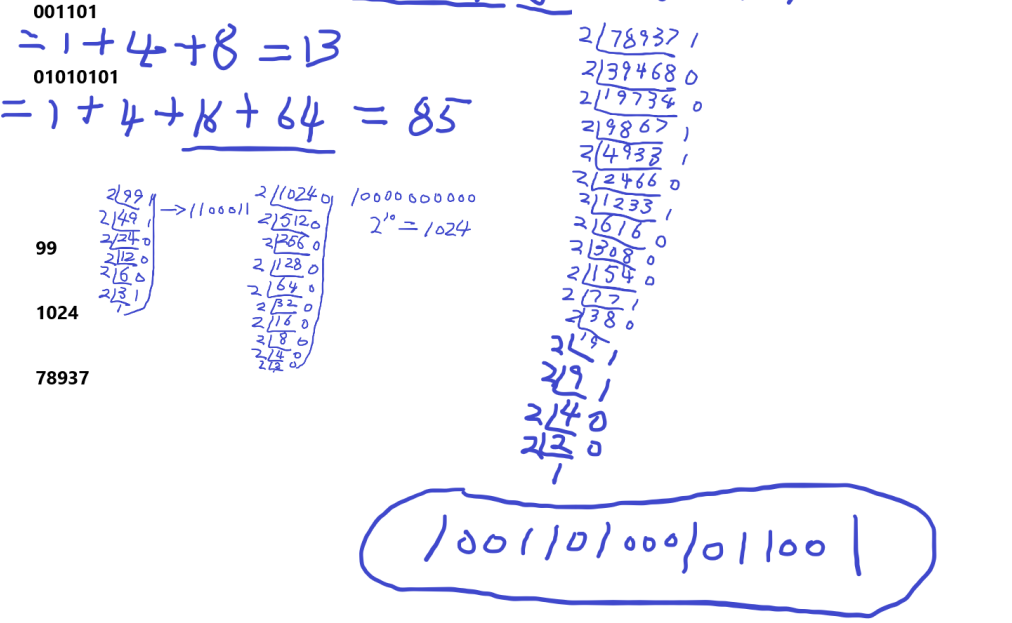 001101
=1+4+8=13
01010101
=1+4+16+64=85
99
2|99 1
2|49 1
2|24 0
2|12 0
2|6 0
2|3 1
1
→1100011
1024
2|1024 0
2|512 0
2|256 0
2|128 0
2|64 0
2|32 0
2|16 0
2|8 0
2|4 0
2|2 0
10000000000
2¹⁰=1024
78937
2|78937 1
2|39468 0
2|19734 0
2|9867 1
2|4933 1
2|2466 0
2|1233 1
2|616 0
2|308 0
2|154 0
2|77 1
2|38 0
2|19 1
2|9 1
2|4 0
2|2 0
1
10011010001011001